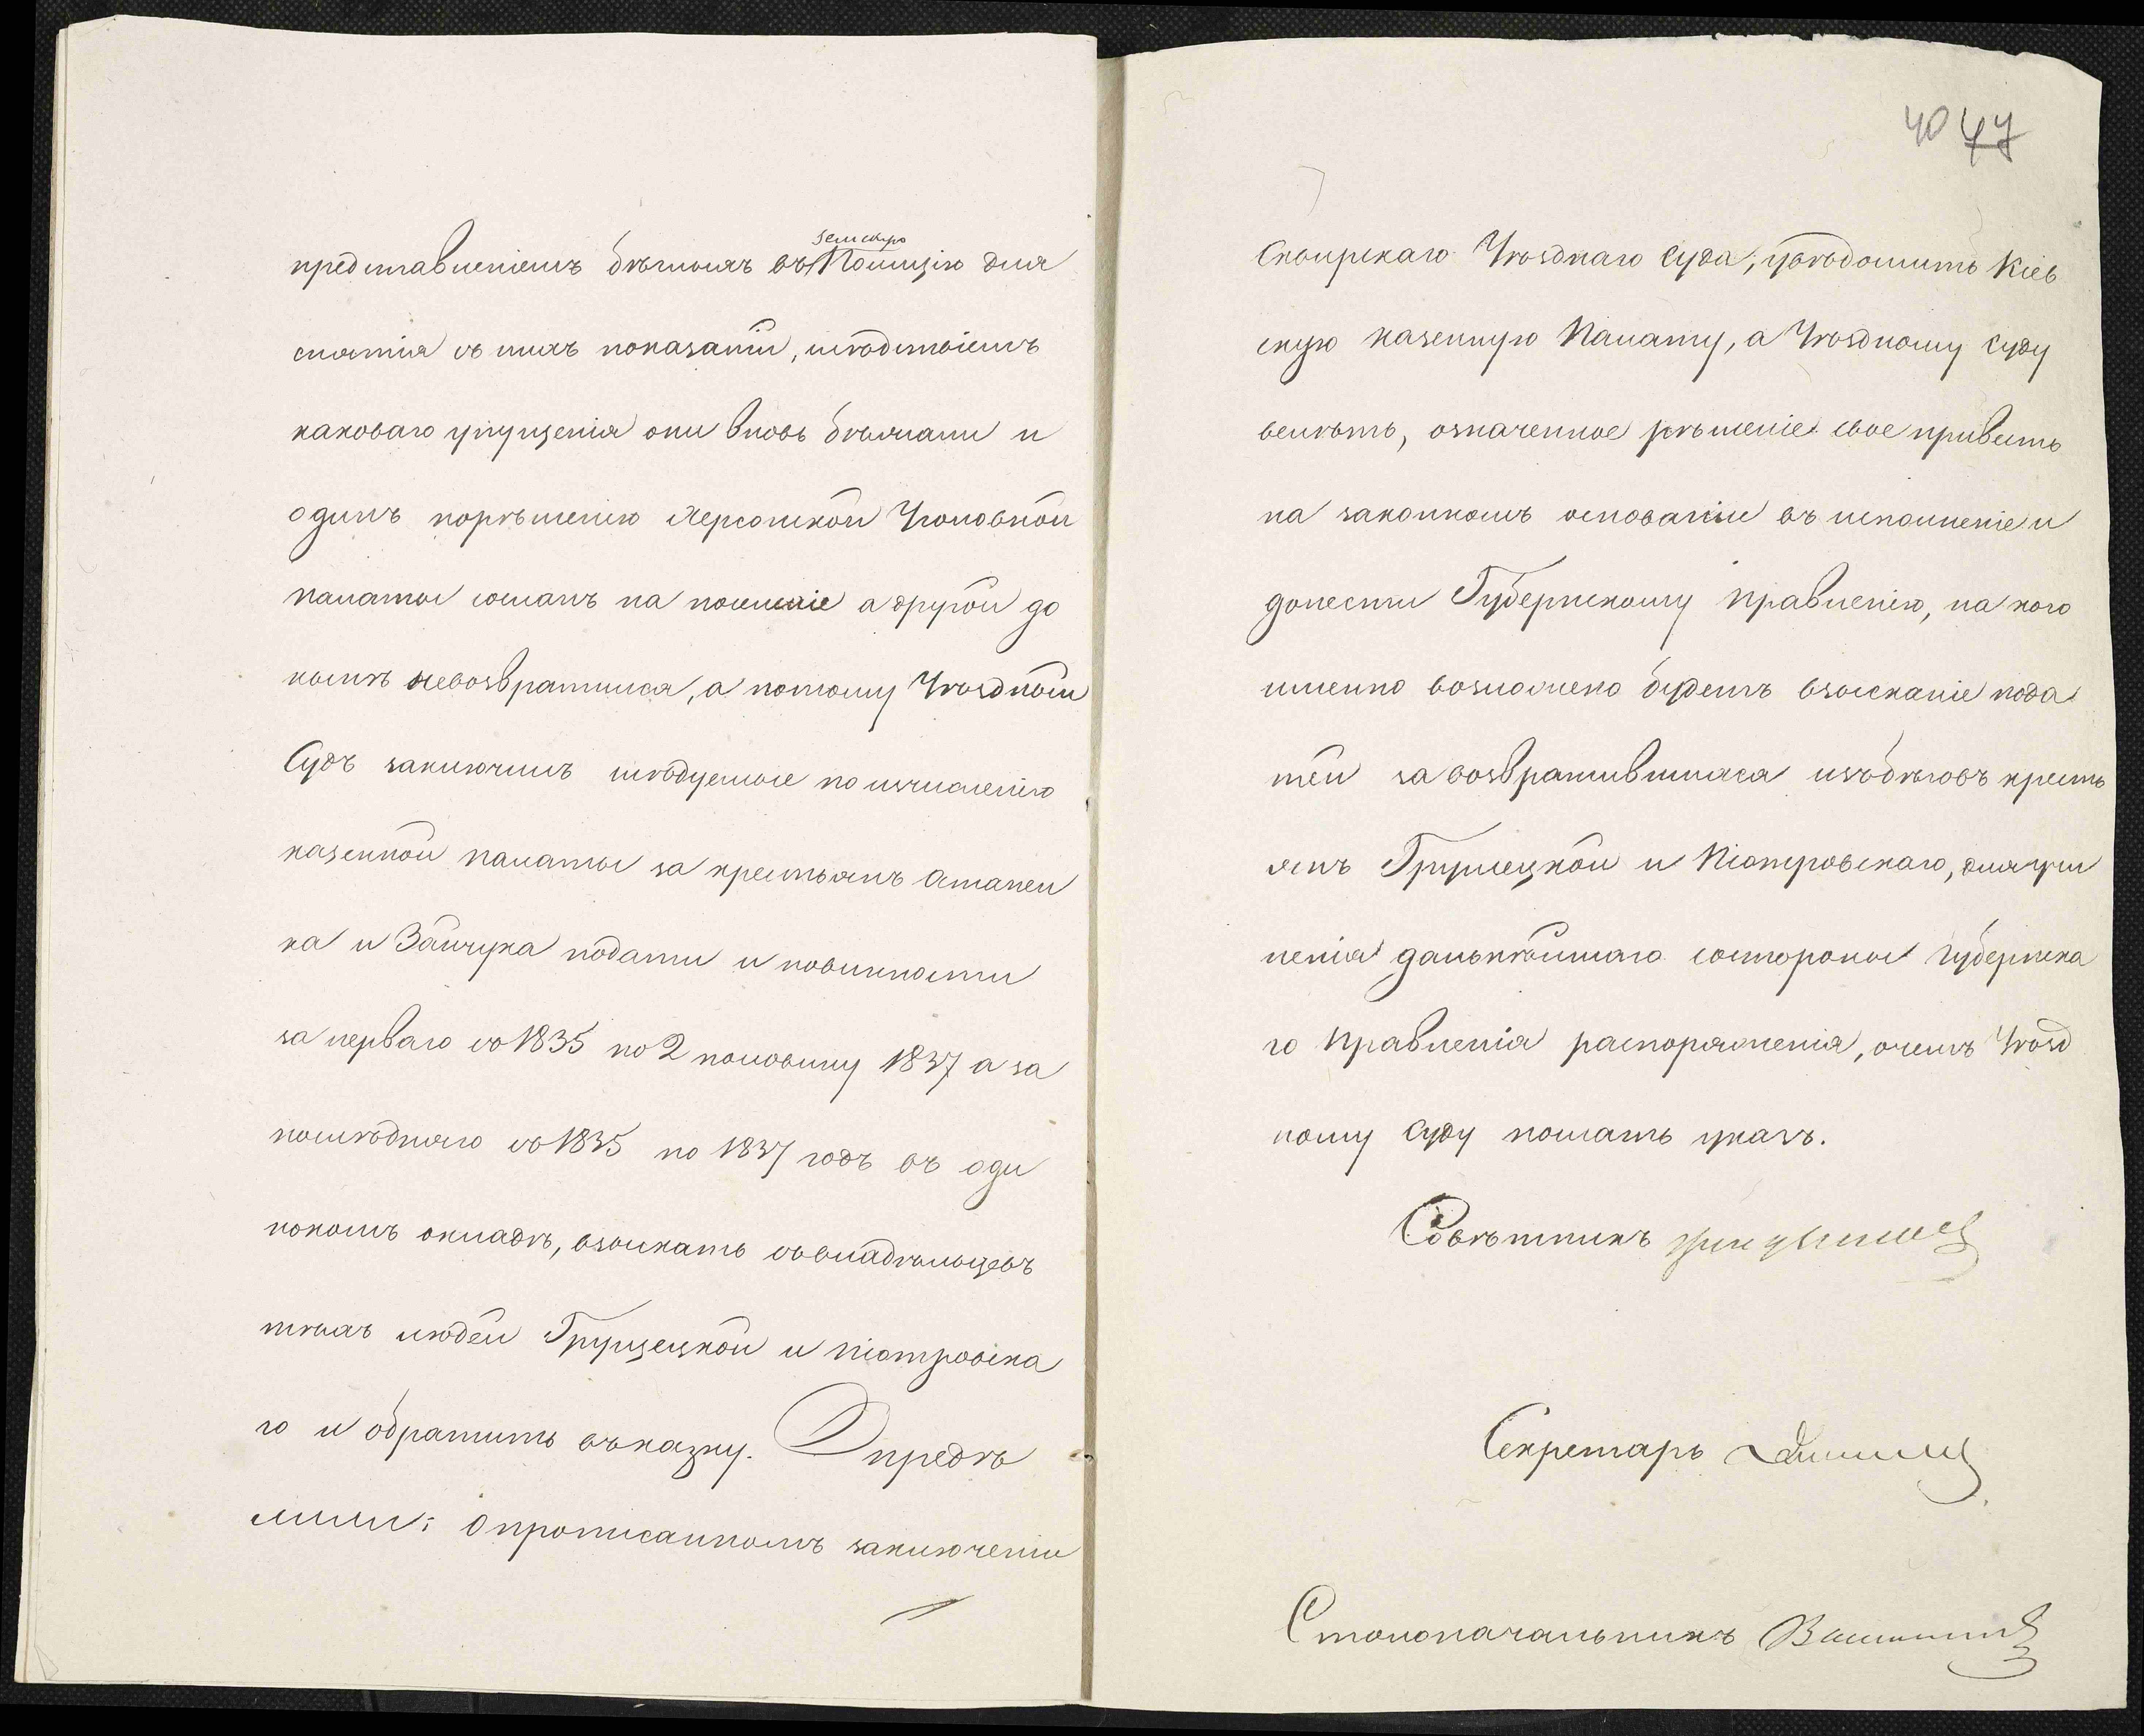 представленіемъ бѣглыхъ въ Полицію для
земскую
снятія съ нихъ показаній, слѣдствіемъ
каковаго упущенія они вновь бѣжали и
одинъ порѣшенію Херсонской Уголовной
палаты сосланъ на поселеніе а другой до
нынѣ невозвратился, а потому Уѣздной
Судъ заключилъ слѣдуемые по исчисленію
казенной палаты за крестьянъ Атамен
ка и Зайчука подати и повинности
за перваго со 1835 по 2 половину 1837 а за
послѣдняго со 1835 по 1837 годъ въ оди
нокомъ окладѣ, взыскать совладѣльцевъ
тѣхъ людей Грущецкой и Піотровска
го и обратить въ казну. Опредѣ
лили: О прописанномъ заключеніи
40 47
Сквирскаго Уѣзднаго Суда, увѣдомить Кіев
скую казенную Палату, а Уѣздному Суду
велѣть, означенное рѣшеніе свое привесть
на законномъ основаніи въ исполненіе и
донести Губернскому Правленію, на кого
именно возложено будетъ взысканіе пода
тей за возвратившихся изъ бѣговъ кресть
янъ Грущецкой и Піотровскаго, для учи
ненія дальнѣйшаго состороны Губернска
го Правленія распоряженія, очемъ Уѣзд
ному Суду послать указъ.
Совѣтникъ
Секретарь
Столоначальникъ